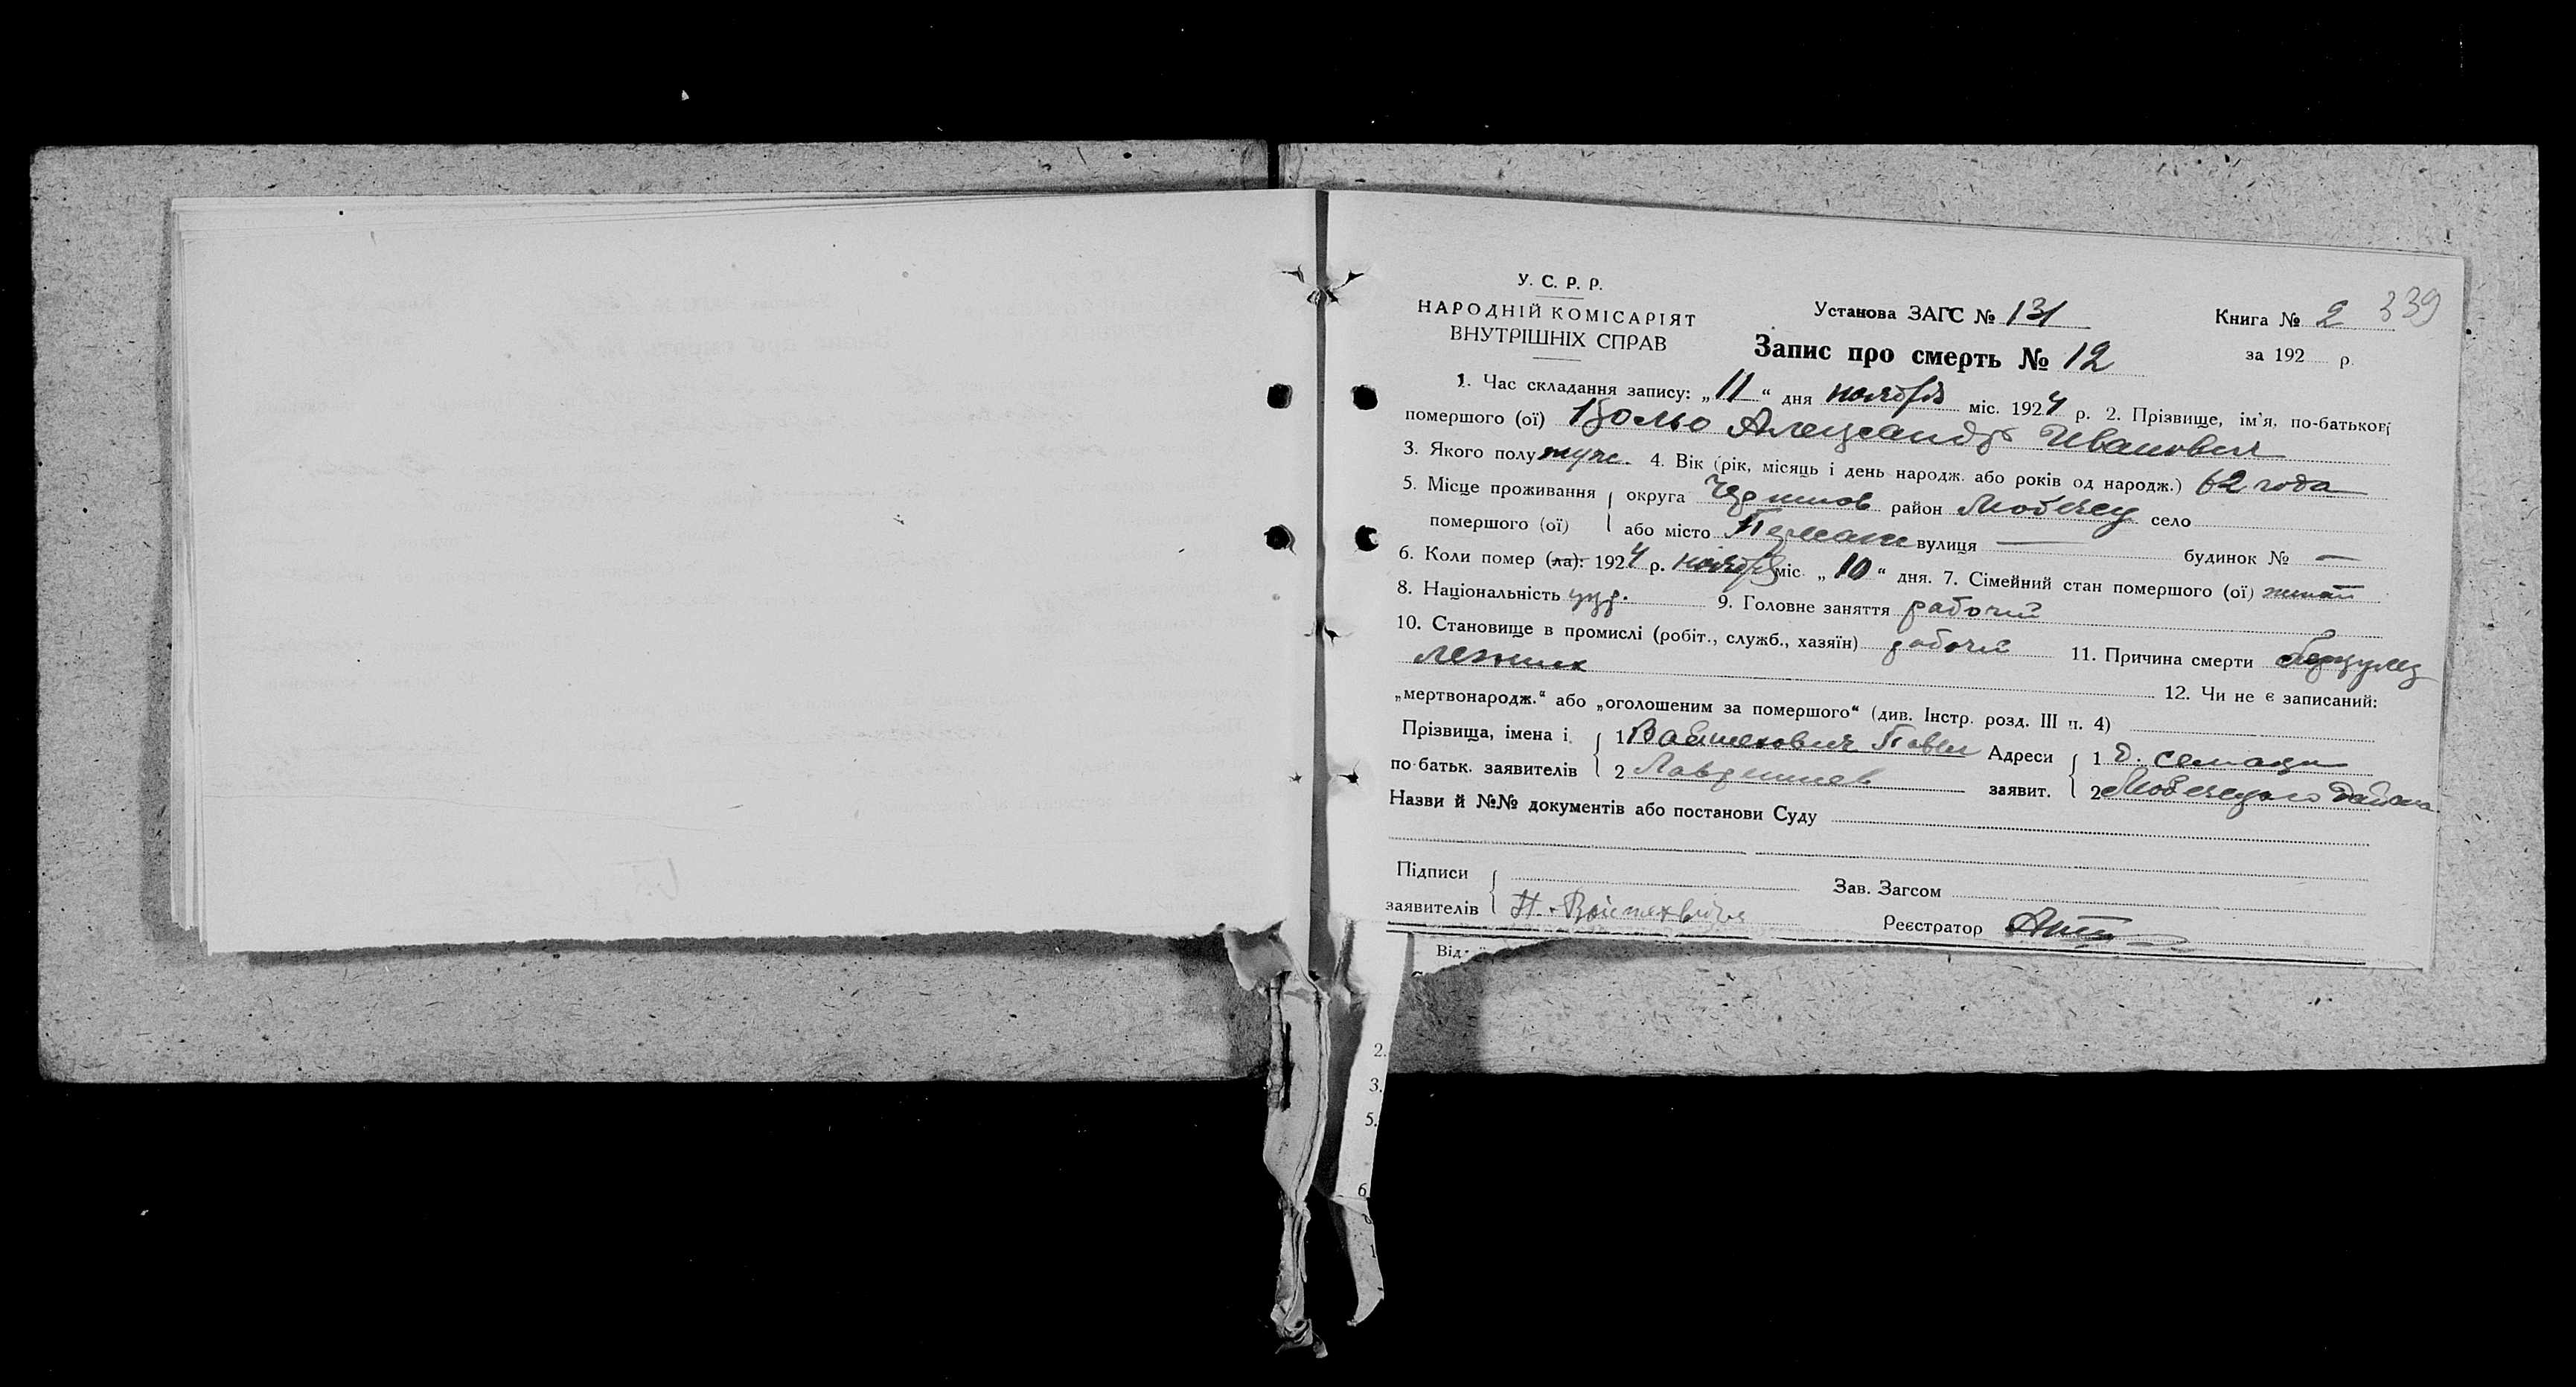 У. С. Р. Р.
НАРОДНІЙ КОМІСАРІЯТ
ВНУТРІШНІХ СПРАВ
Установа ЗАГС № 131
Книга № 2 339
Запис про смерть № 12
за 192 р.
1. Час складання запису: „11“ дня ноября міс. 1924 р. 2. Прізвище, ім'я, по-батькові
помершого (ої) Александр Иванович
3. Якого полу муж. 4. Вік (рік, місяць і день народж. або років од народж.) 62 года
5. Місце проживання округа Чернигов район Любечск село
помершого (ої) або місто вулиця — будинок № —
6. Коли помер (ла): 1924 р. ноября міс. „10“ дня. 7. Сімейний стан помершого (ої) женат
8. Національність укр. 9. Головне заняття рабочий
10. Становище в промислі (робіт., служб., хазяїн) рабочий 11. Причина смерти туберкулез
легких
12. Чи не є записаний:
„мертвонародж.“ або „оголошеним за помершого“ (див. Інстр. розд. III п. 4)
Прізвища, імена і 1 Войтехович Павел Адреси 1 д. Семаки
по батьк. заявителів 2 заявит. 2 Любечского района
Назви й №№ документів або постанови Суду
Підписи
Зав. Загсом
заявителів П. Войтехович
Реєстратор
Від
2.
3.
5.
6
8
1